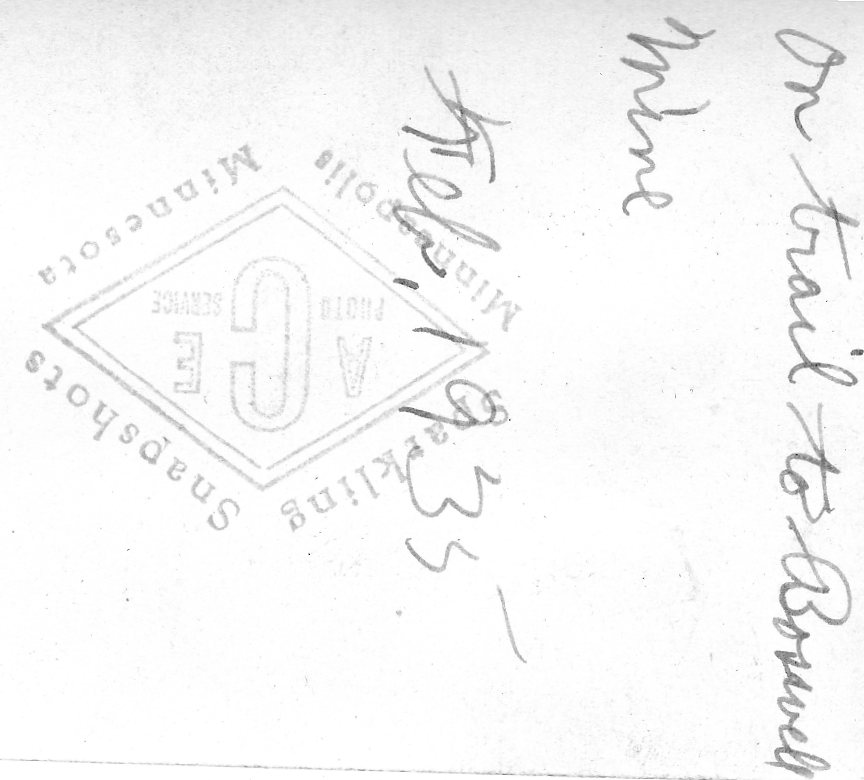 On trail to Boswell
Mine
Feb. 1935
Sparkling Snapshots
A C E
PHOTO SERVICE
Minneapolis Minnesota